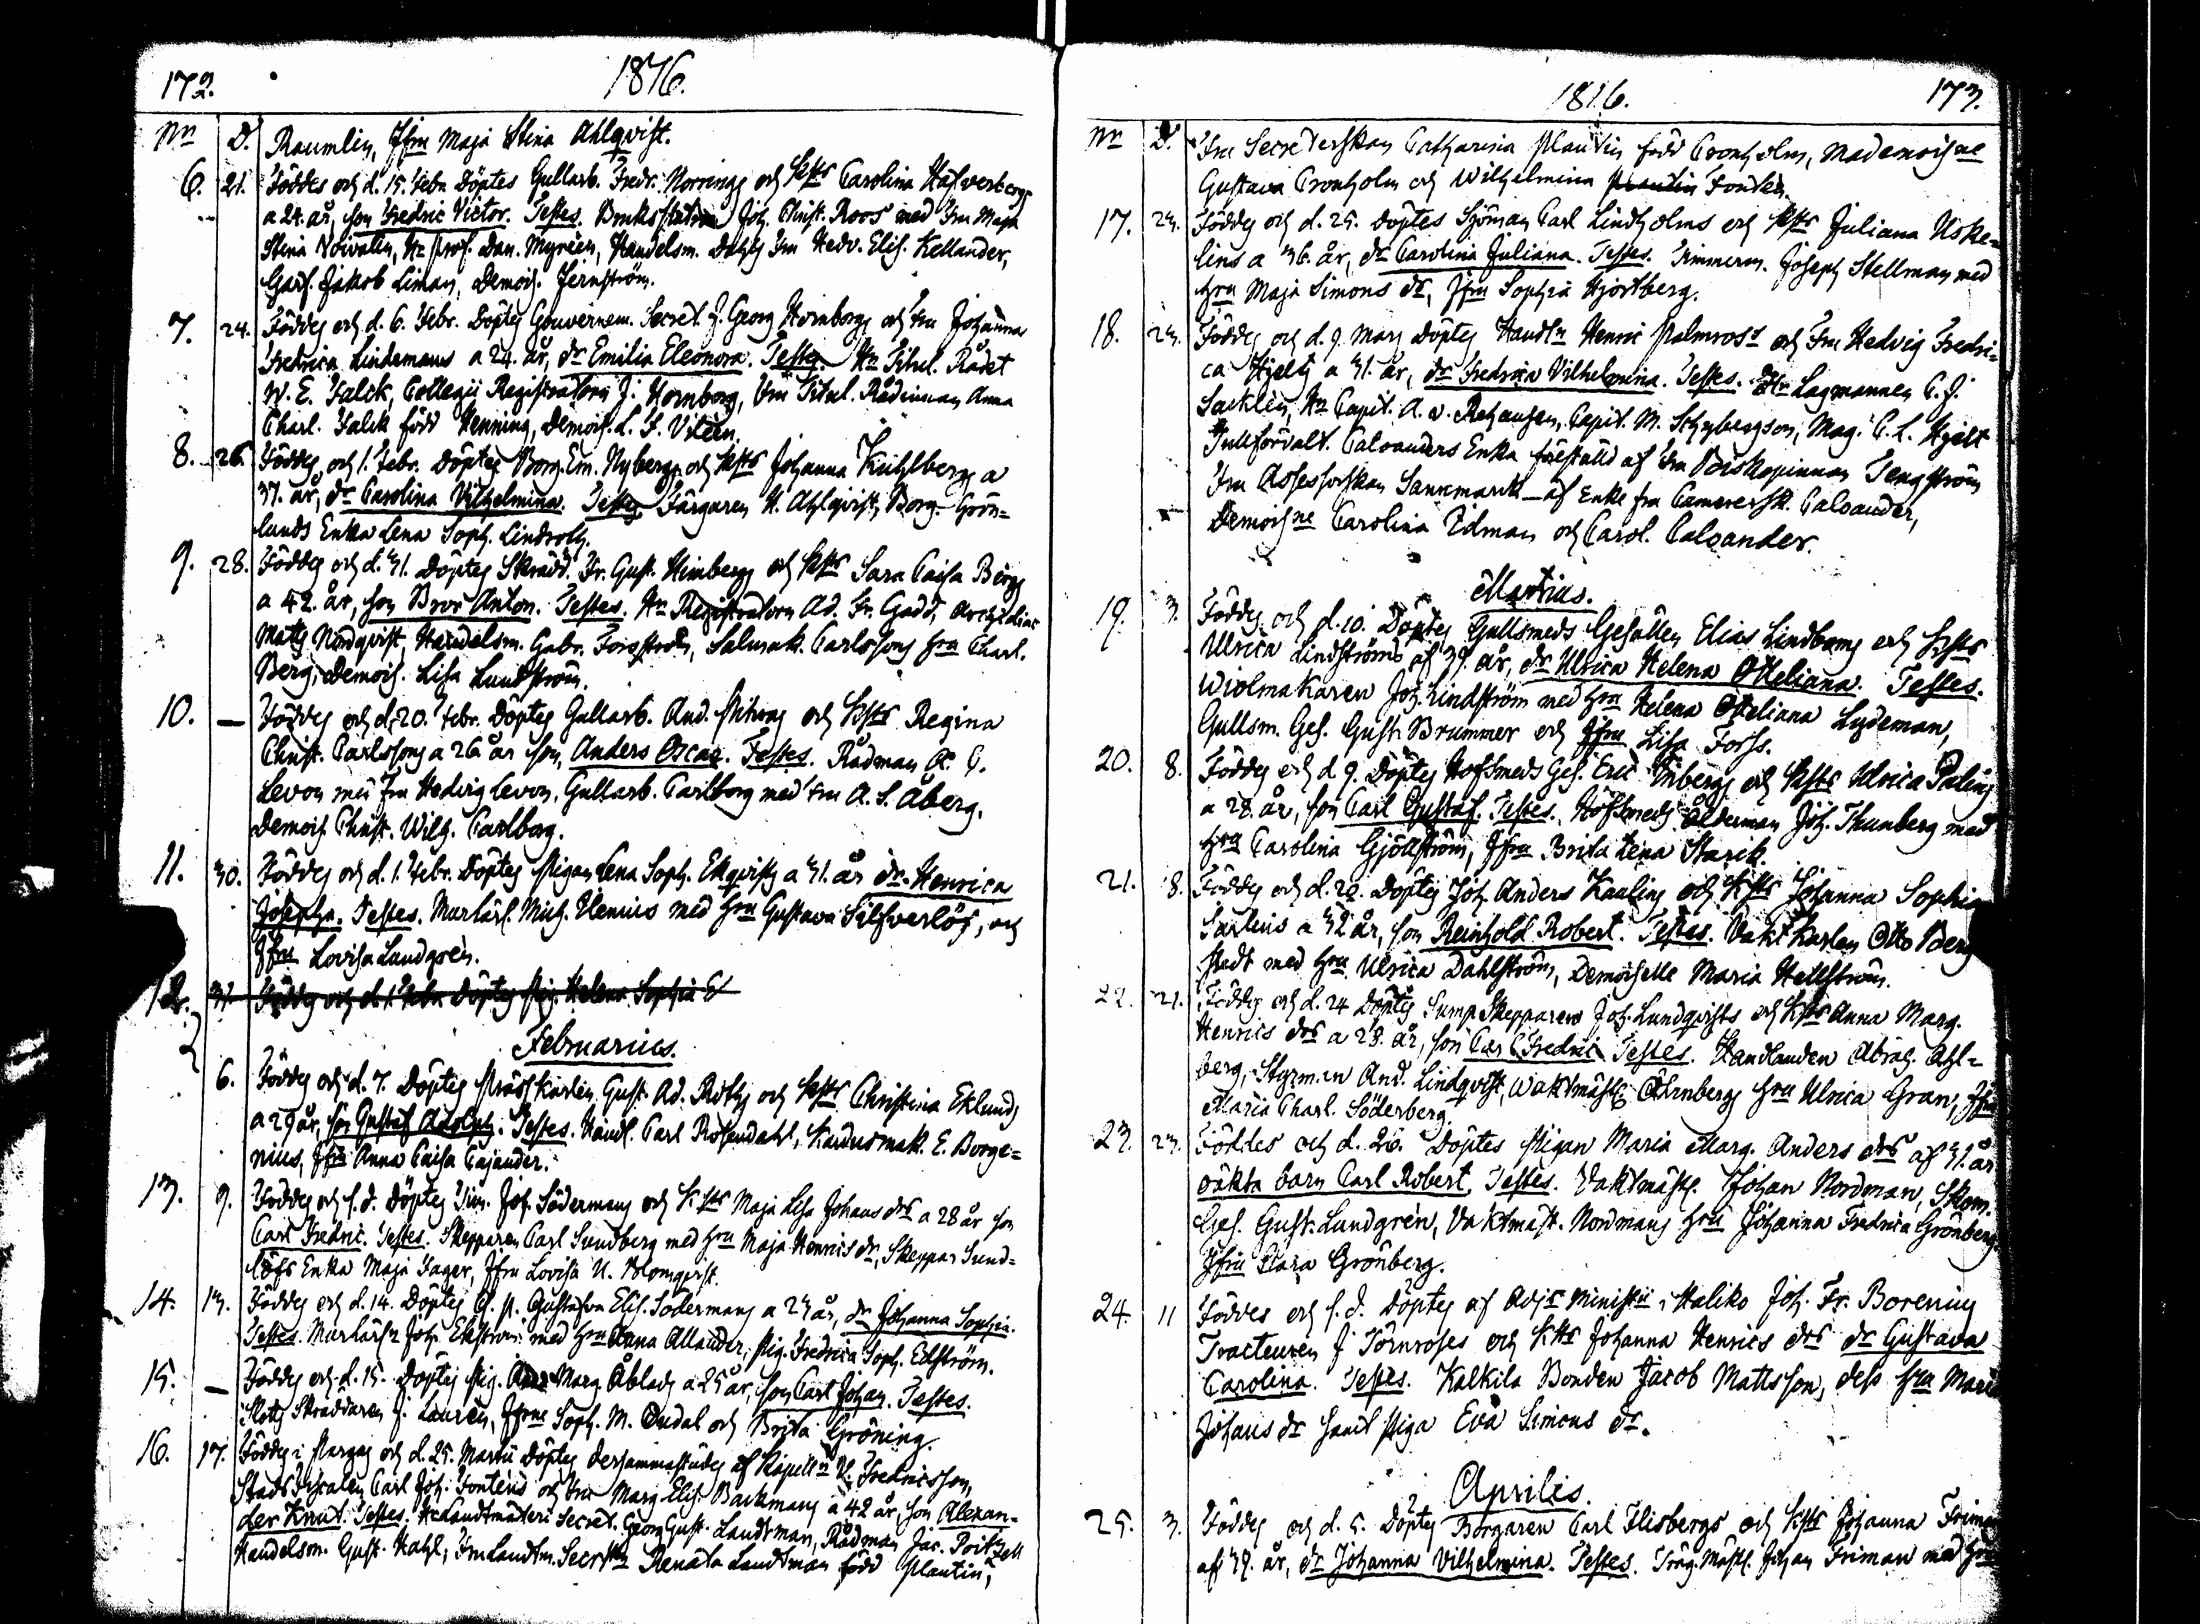 172.
1816.
Nr D. Raumlin, Jfru Maja Stina Ahlqvist.
6. 21. Föddes och d. 15. Febr. Döptes Gullarb. Fredr. Norrings och Hsts Carolina Hafverbergs
a 24. år, son Fredric Victor. Testes. Joh. Christ. Roos med Fru Maja
Stina Hr Prof. Dan. Myréen, Handelsm. Fru Hedv. Elis. Kellander,
Garf. Jakob Liman, Demois. Jernström.
7. 24. Föddes och d. 6. Febr. Döptes Gouvernem. Secret. J. Georg Hornborgs och Fru Johanna
Fredrica Lindemans a 24. år, dr Emilia Eleonora. Testes. Hr Titul. Rådet
W. E. Falck, Collegii Registratorn J. Hornborg, Fru Titul. Rådinnan Anna
Charl. Falck född Henning, Demois. L. F. Viteen.
8. 26. Föddes och 1. Febr. Döptes Borg. Em. Nybergs och Hsts Johanna Kuhlbergs a
37. år, dr Carolina Vilhelmina. Testes Färgaren H. Ahlqvist, Borg. Grön-
lunds Enka Lena Soph. Lindroth.
9. 28. Föddes och d. 31. Döptes Skrädd. Fr. Gust. Himbergs och Hsts Sara Caisa Bergs
a 42. år, son Bror Anton. Testes. Hr Registratorn Ad. Fr. Gadd,
Matts Nordqvist, Handelsm. Gabr. Forsström, Salmak. Carlssons hru Charl.
Berg, Demois. Lisa Lundström.
10. — Föddes och d. 20. Febr. Döptes Gullarb. And. och Hsts Regina
Christ. Carlssons a 26 år son, Anders Oscar. Testes. Rådman A. C.
Levon med Fru Hedvig Levon, Gullarb. Carlborg med Fru A. S. Åberg,
Demois. Christ. Wilh. Carlborg.
11. 30. Föddes och d. 1. Febr. Döptes Pigan Lena Soph. Ekqvists a 31. år dr. Henrica
Josepha. Testes. Murlärl. Mich. Henius med hru Gustava Silfverlöf, och
Jfru Lovisa Lundgrén.
12. 31. Föddes och d. 1. Febr. Döptes Pig. Helena Sophia E
Februarius.
6. Föddes och d. 7. Döptes Gust. Ad. Roths och Hsts Christina Eklunds
a 29 år, son Gustaf Adolph. Testes. Handl. Carl Rosendahl, Kardusmak. E. Borge-
nius, Jfru Anna Caisa Cajander.
13. 9. Föddes och s. d. Döptes Tim. Joh. Södermans och Hsts Maja Lisa Johans drs a 28 år son
Carl Fredric. Testes. Skepparen Carl Sundberg med hru Maja Henrics dr, Skeppar Sund-
löfs Enka Maja Jager, Jfru Lovisa U. Blomqvist.
14. 13. Föddes och d. 14. Döptes Gustafva Elis. Södermans a 23 år, dr Johanna Sophia.
Testes. Murlärl. Joh. Ekström med hru Anna Allander, Pig. Fredrica Soph. Edström.
15. — Föddes och d. 15. Döptes Pig. Marg. Åblads a 25 år, son Carl Johan. Testes.
Slotts Skräddaren J. Laurén, Jfrne Soph. M. Öndal och Brita Gröning.
16. 17. Föddes i Pargas och d. 25. Martii Döptes dersammastädes af Kapelln U. Fredricsson,
Stads Fiscalen Carl Joh. Fontens och Fru Marg. Elis. Backmans a 42 år, son Alexan-
der Knut. Testes. Hr Landtmäteri Secret. Georg Gust. Landtman, Rådman Jac. Pritzell
Handelsm. Gust. Kahl, Fru Landtm. Secrskn Renata Landtman född Plantin,
1816.
173.
Nr D. Fru Secreterskan Catharina Plantin född Cronholm, Mademoiselne
Gustava Cronholm och Wilhelmina Plantin Fontén.
17. 24. Föddes och d. 25. Döptes Sjöman Carl Lindholms och Hsts Juliana Uske-
lins a 36. år, dr Carolina Juliana. Testes. Timmerm. Joseph Stellman med
hru Maja Simons dr, Jfru Sophia Hjortberg.
18. 24. Föddes och d. 9. Mars Döptes Handln Henric Palmros och Fru Hedvig Fredri-
ca Hjelts a 31. år, dr Fredrica Vilhelmina. Testes. Hr Lagmannen C. J.
Sacklén, Hr Capit. A. v. Rehausen, Capit. M. Schybergson, Mag. C. L. Hjelt
Tullförvalt. Caloanders Enka föreställd af Fru Biskopinnan Tengström
Fru Assessorskan Sannmarck — af Enke fru Camerersk. Caloander,
Demoisne Carolina Idman och Carol. Caloander.
Martius.
19. 3. Föddes och d. 10. Döptes Gullsmeds Gesällen Elias Lindboms och Hsts
Ulrica Lindströms af 39. år, dr Ulrica Helena Otteliana. Testes.
Joh. Lindström med hru Helena Otteliana Lydeman,
Gullsm. Ges. Gust. Brummer och Jfru Lisa Forss.
20. 8. Föddes och d. 9. Döptes Hofsmeds Ges. Eric och Hsts Ulrica Palins
a 28. år, son Carl Gustaf. Testes. Hofsmeds Ålderman Joh. Thunberg med
hru Carolina Gjöllström, Jfru Brita Lena Starck.
21. 8. Föddes och d. 20. Döptes Joh. Anders Kaulins och Hsts Johanna Sophia
Sarlins a 32 år, son Reinhold Robert. Testes. Vakt Karlen Otto Berg
stedt med hru Ulrica Dahlström, Demoiselle Maria Hellström.
22. 21. Föddes och d. 24 Döptes Sump Skepparens Joh. Lundqvists och Hsts Anna Marg.
Henrics drs a 28. år, son Carl Fredric Testes. Handlanden Abrah. Ahl-
berg, Styrman And. Lindqvist, Waktmäst. Öhrnbergs hru Ulrica Gran, Jfru
Maria Charl. Söderberg.
23. 23. Föddes och d. 26. Döptes Pigan Maria Marg. Anders drs af 31. år
oäkta barn Carl Robert. Testes. Vaktmäst. Johan Nordman, Skom.
Ges. Gust. Lundgrén, Vaktmäst. Nordmans hru Johanna Fredrica Grönberg
Jfru Clara Grönberg.
24. 11 Föddes och s. d. Döptes af Adjr Ministii i Haliko Joh. Fr. Borenius
Tracteuren J Törnroses och Hsts Johanna Henrics drs dr Gustava
Carolina. Testes. Kalkila Bonden Jacob Mattsson, dess hru Maria
Johans dr samt Piga Eva Simons dr.
Aprilis.
25. 3. Föddes och d. 5. Döptes Borgaren Carl Flisbergs och Hsts Johanna Friman
af 39. år, dr Johanna Vilhelmina. Testes. Träg. Mäst. Johan Friman med hru